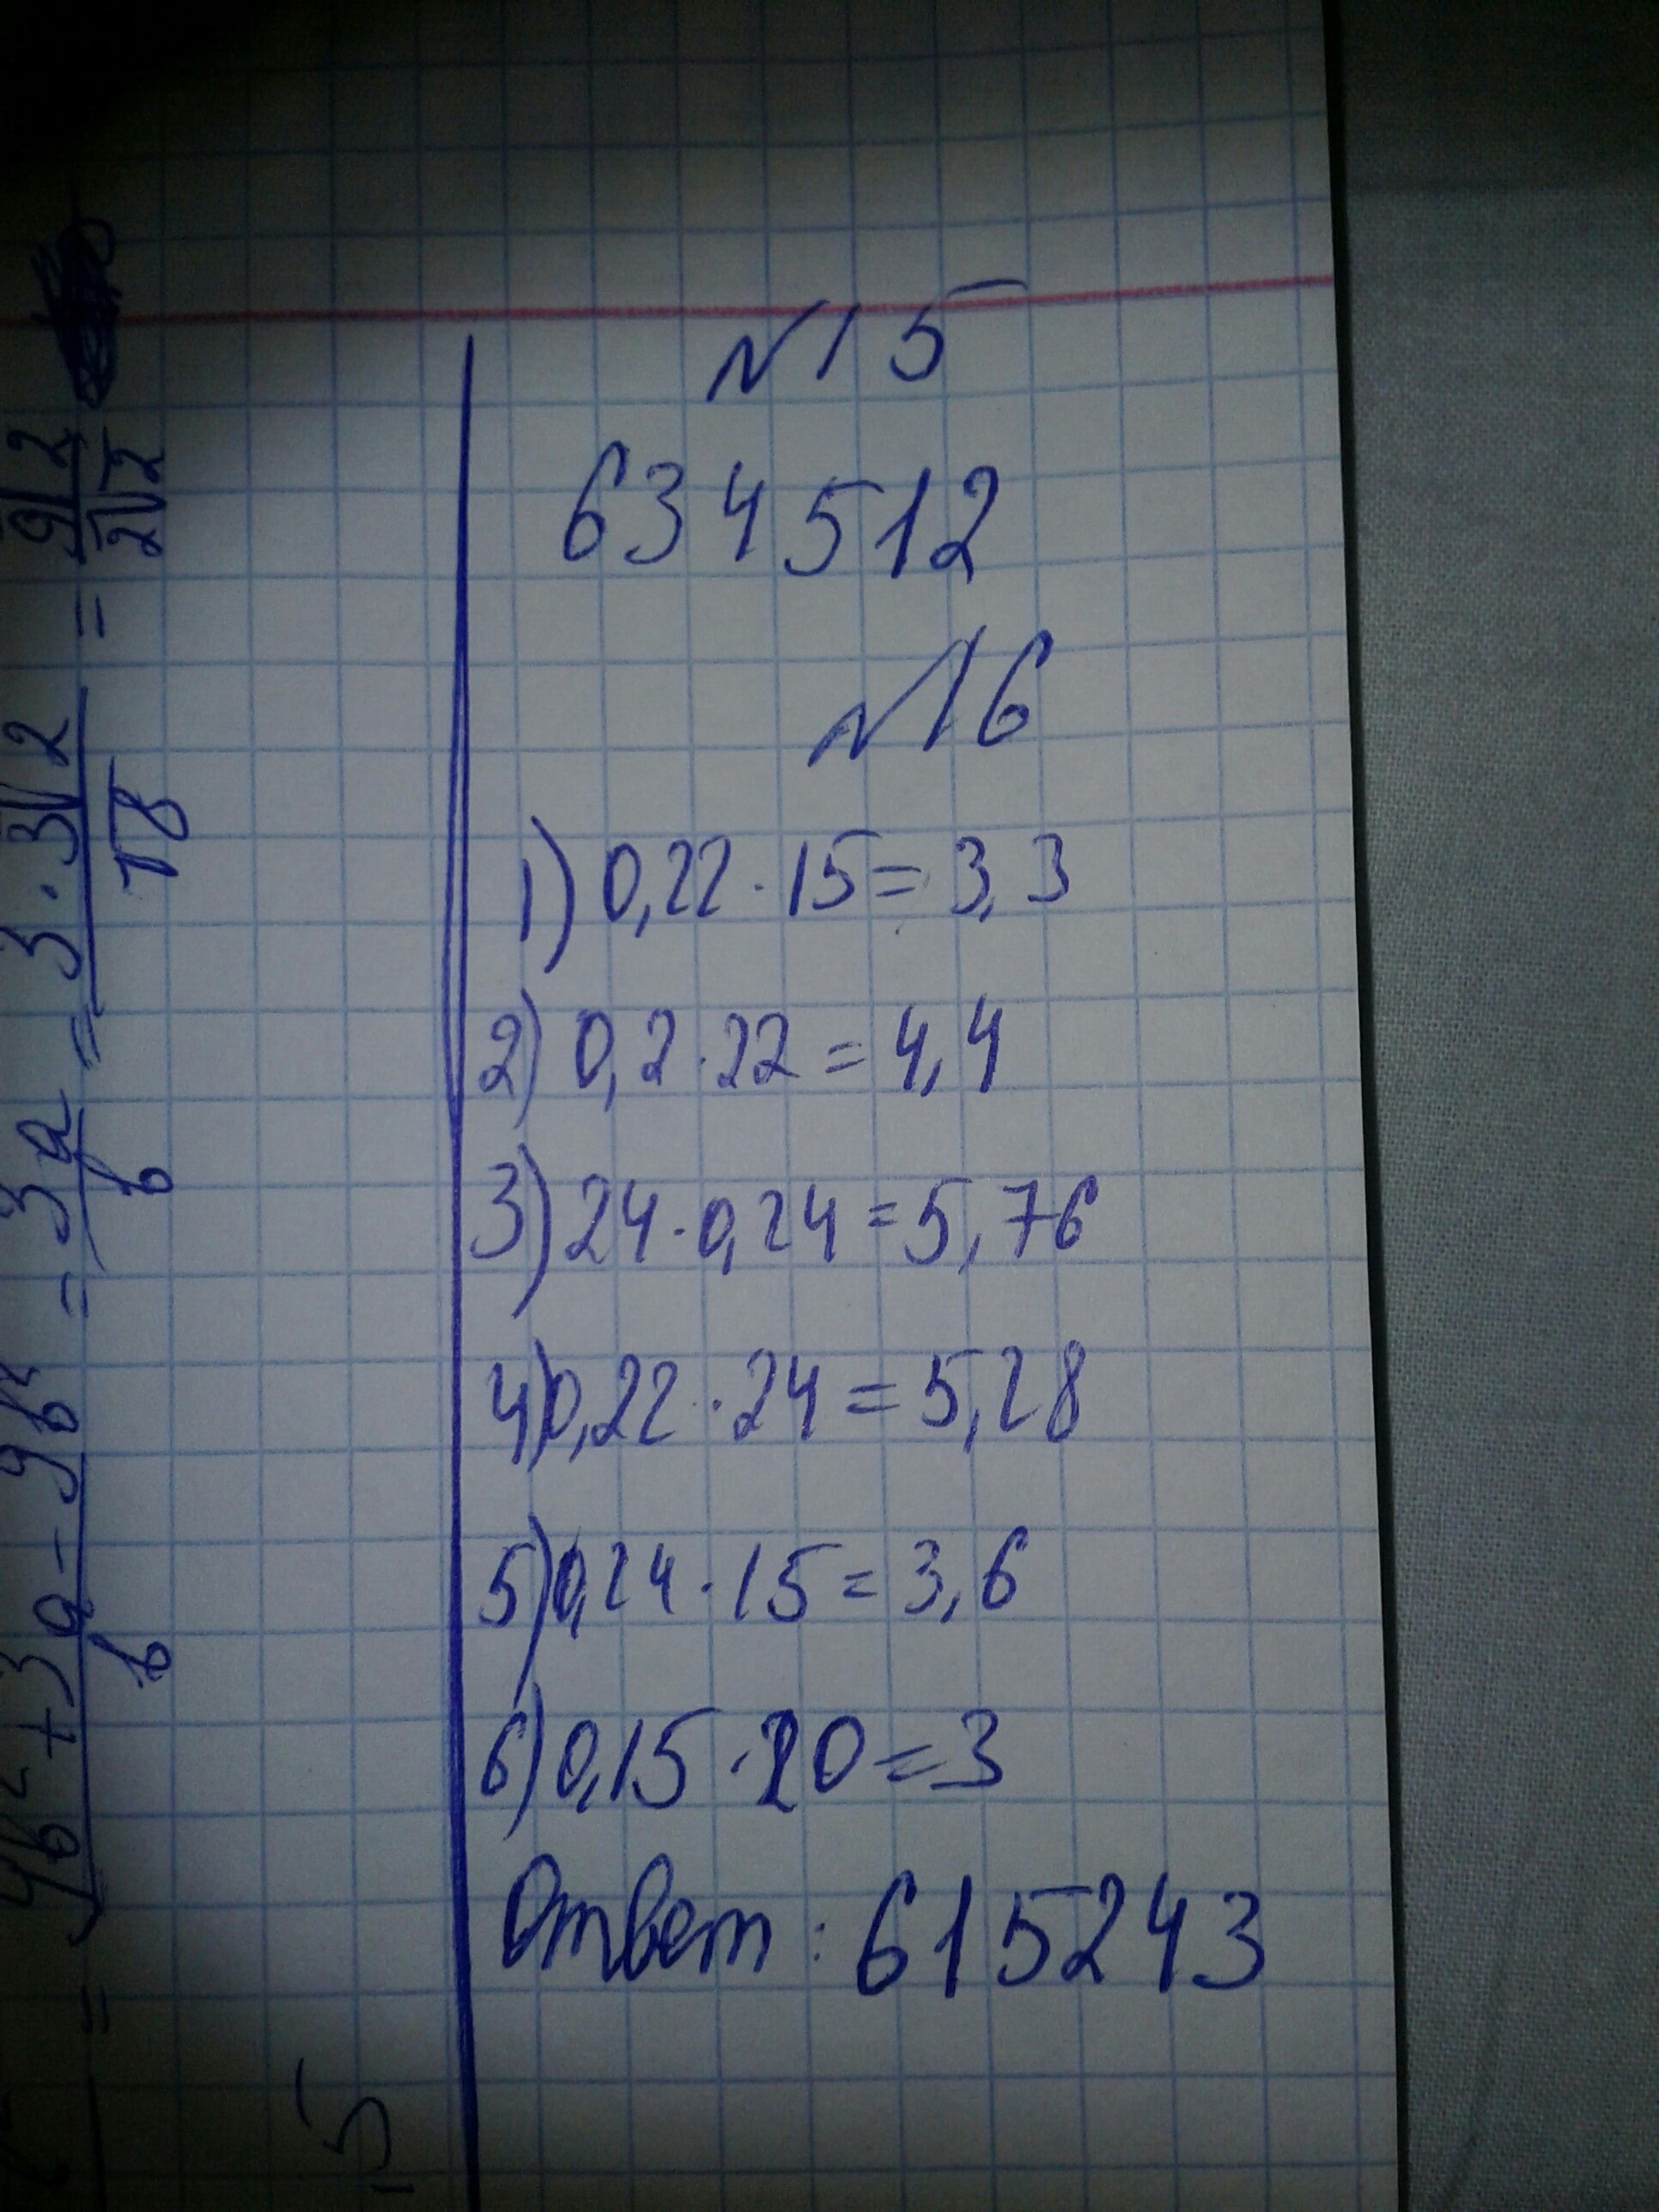 №15
634512
№16
1) 0,22 · 15 = 3,3
2) 0,2 · 22 = 4,4
3) 24 · 0,24 = 5,76
4) 0,22 · 24 = 5,28
5) 0,24 · 15 = 3,6
6) 0,15 · 20 = 3
Ответ: 615243
= 9b² + 3a - 9b² / b = 3a / b = 3 · 3√2 / √8 = 9√2 / 2√2